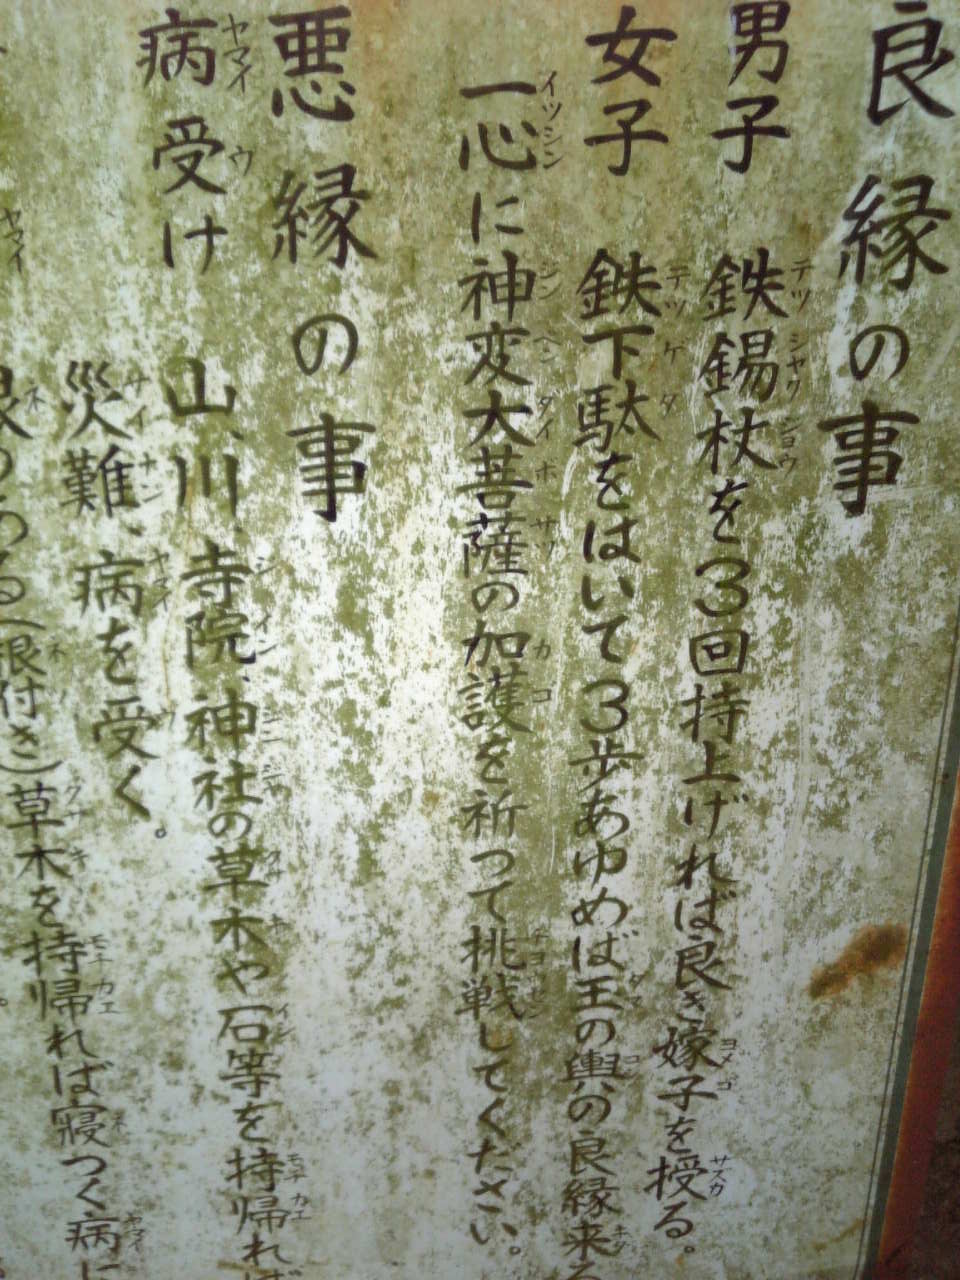 良縁の事
男子 鉄錫杖を3回持上げれば良き嫁子を授る。
女子 鉄下駄をはいて3歩あゆめば王の輿の良縁来る
一心に神変大菩薩の加護を祈って挑戦してください。
悪縁の事
病受け 山、川、寺院、神社の草木や石等を持帰れば
災難、病を受く。
根のある(根付き)草木を持帰れば寝つく病に